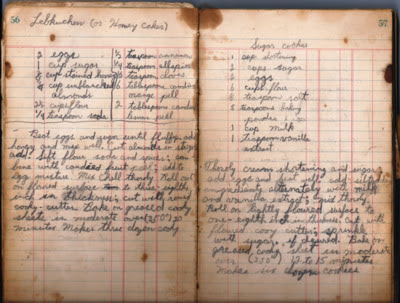 56
Lebkuchen (or Honey Cakes)
2 eggs
1 cup sugar
cup strained honey
cup unblanched
almonds
2½ cups flour
¼ teaspoon soda
½ teaspoon cinnamon
¼ teaspoon allspice
teaspoon cloves
tablespoons candied
orange peel
2 tablespoons candied
lemon peel
Beat eggs and sugar until fluffy; add
honey and mix well. Cut almonds in strips
add. Sift flour soda and spices; com
bine with candied fruit peel; add to
egg mixture. Mix Chill thordly. Roll out
on floured surface to three eighths
inch in thickness; cut with
cooky cutter. Bake on greased cooky
sheets in moderate oven (350°) 20
minutes. Makes three dozen cooky
57
Sugar cookies
1 cup shortening
2 cups sugar
2 eggs
6 cups flour
teaspoon salt
3 teaspoons baking
powder
1 cup milk
1 teaspoon vanilla
extract
Thordy cream shortening and sugar;
add eggs and beat well; add sifted
ingredients alternately with milk
and vanilla extract; mix thordy.
Roll on lightly floured surface to
one-eighth inch in thickness; cut with
floured cooy cutter; sprinkle
with sugar, if desired. Bake on
greased cooky sheet in moderate
oven (350°) 12 to 15 minutes
Makes six dozen cookies